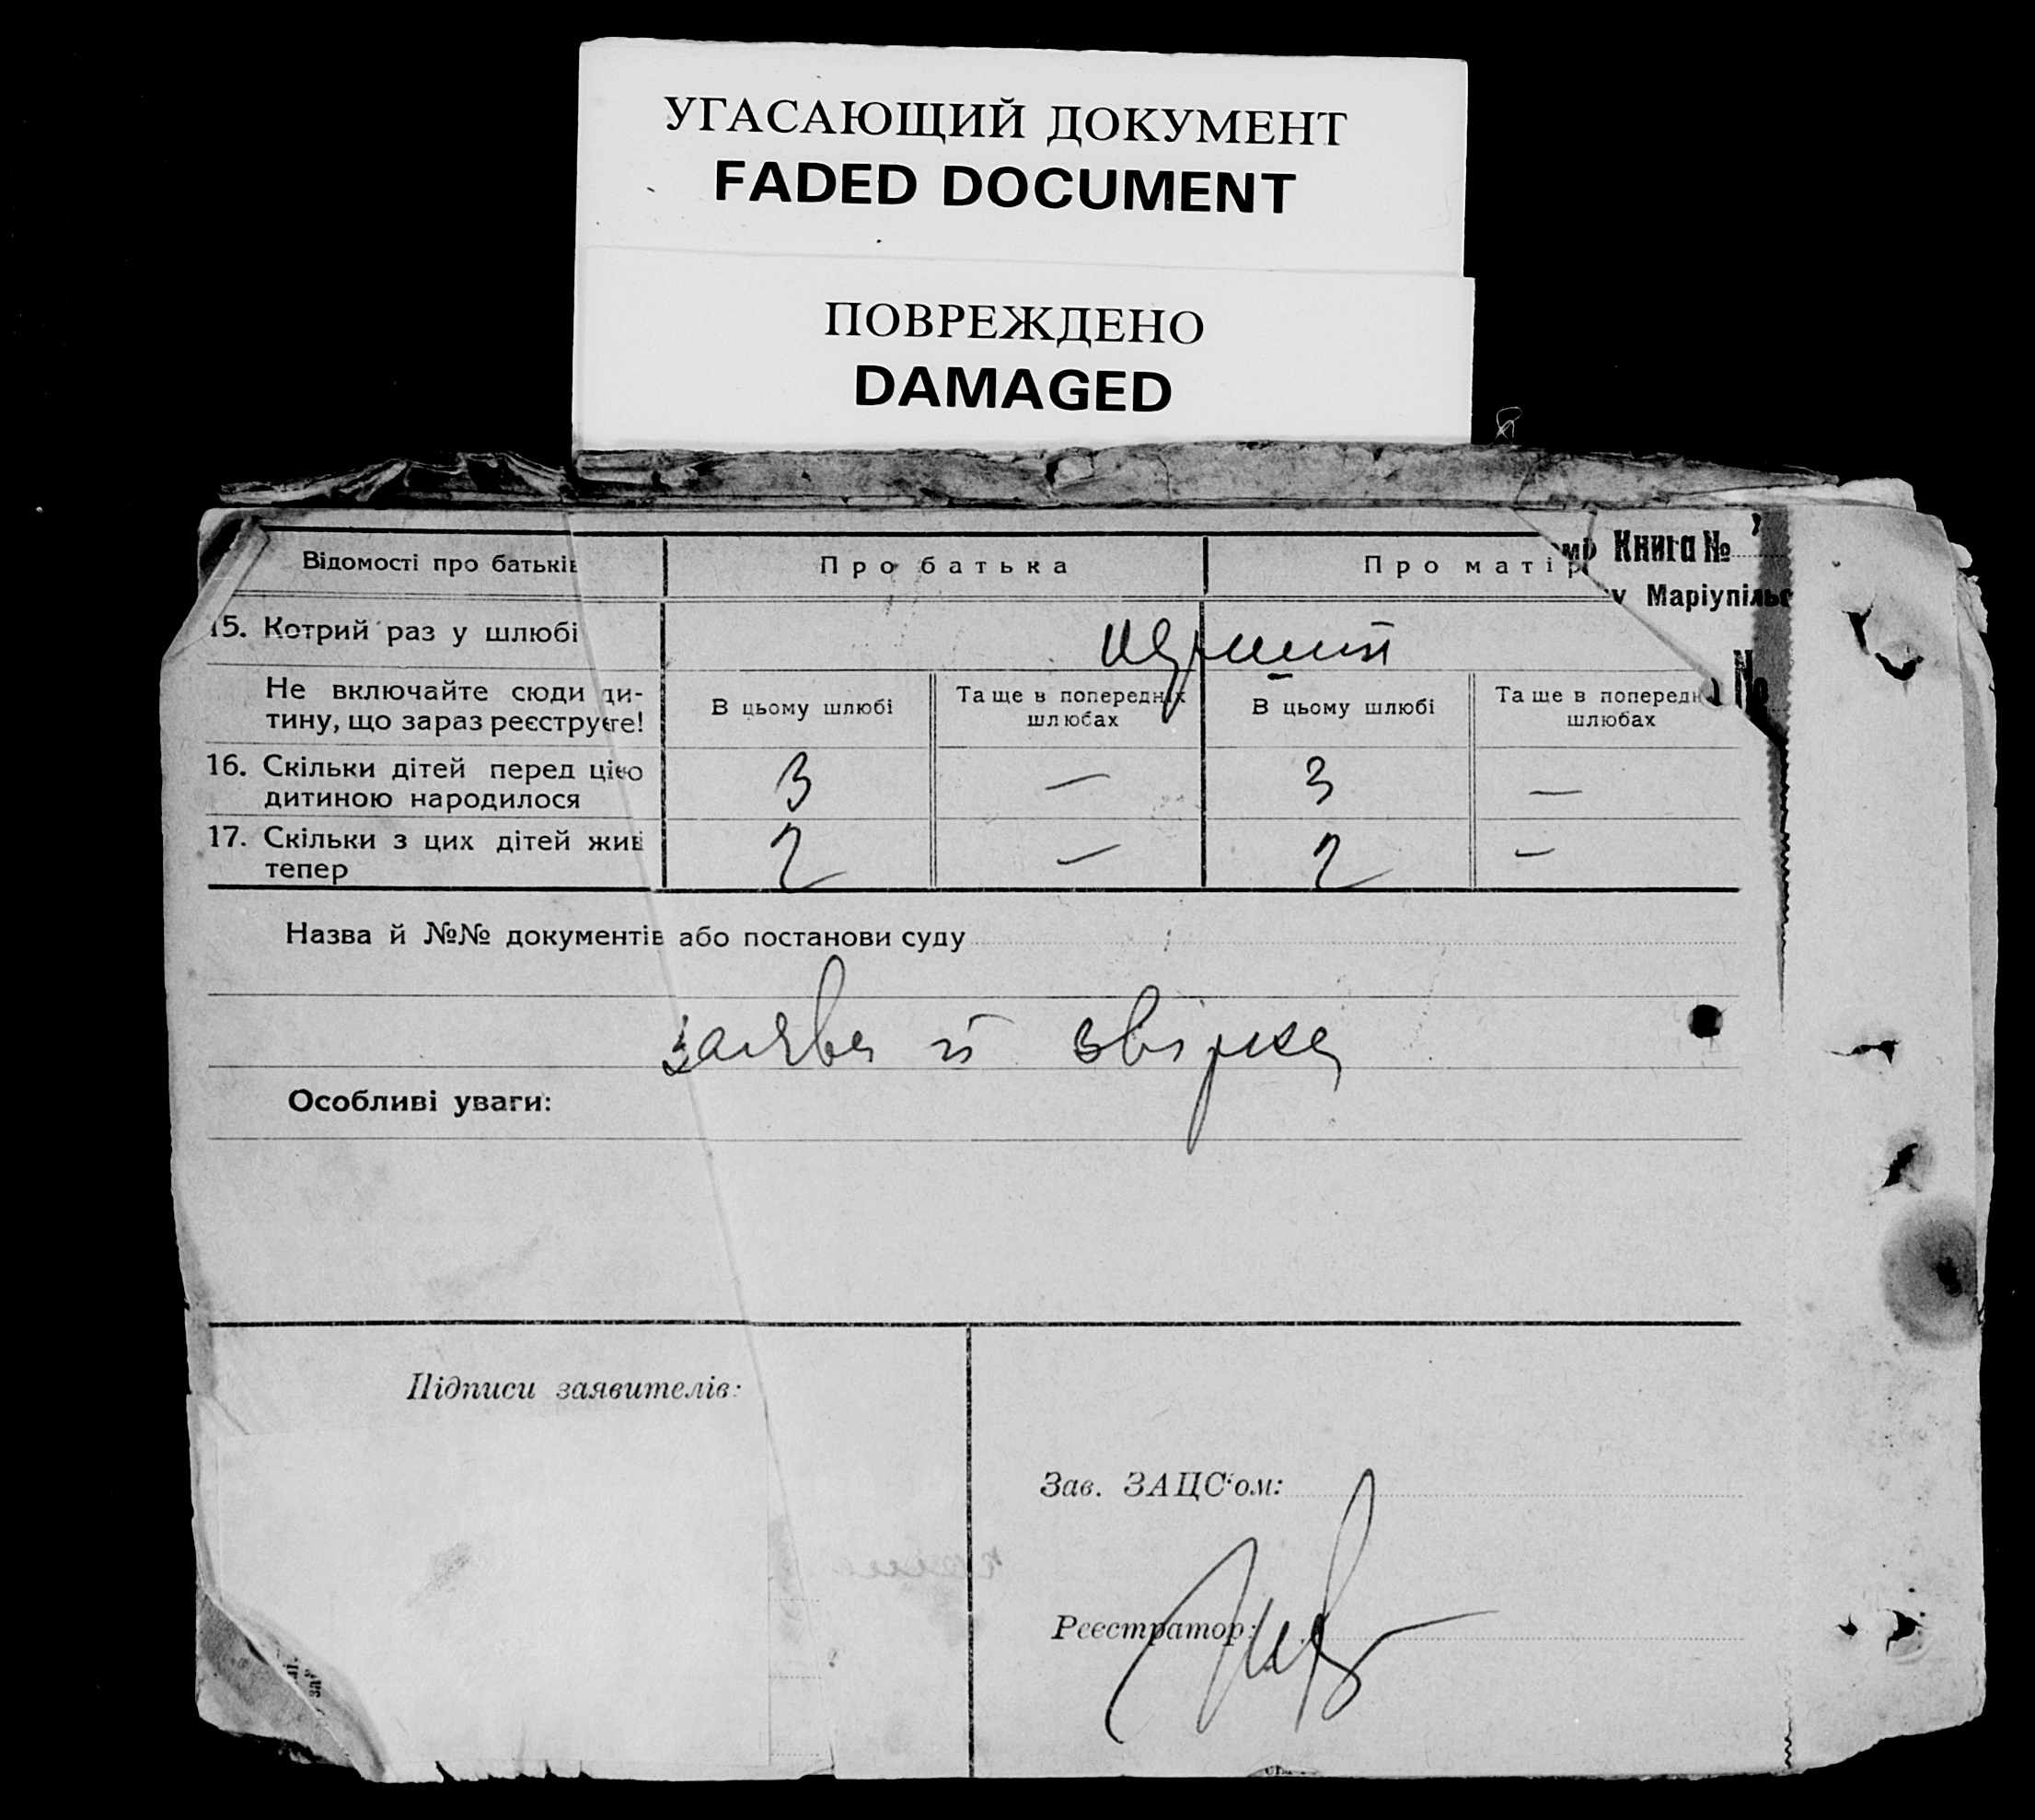 УГАСАЮЩИЙ ДОКУМЕНТ
FADED DOCUMENT
ПОВРЕЖДЕНО
DAMAGED
Книга №
Маріупільс
№
Відомості про батьків Про батька Про матір
15. Котрий раз у шлюбі перший
Не включайте сюди ди-
тину, що зараз реєструєте!
В цьому шлюбі Та ще в попередніх шлюбах В цьому шлюбі Та ще в попередн шлюбах
16. Скільки дітей перед цією
дитиною народилося 3 — 3 —
17. Скільки з цих дітей живі
тепер 2 — 2 —
Назва й №№ документів або постанови суду
заява й звірка
Особливі уваги:
Підписи заявителів:
Зав. ЗАЦС'ом:
Реєстратор: